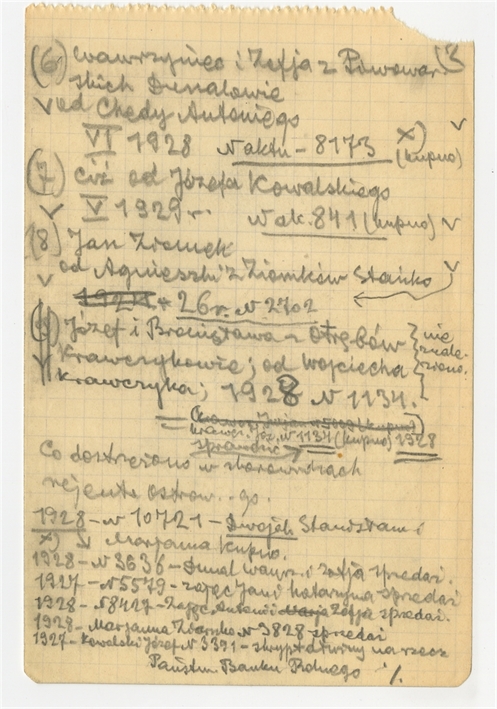 3
(6) Wawrzyniec i Zofja z Powowar
skich Dunalowie
od Chedy Antoniego
VI 1928 N aktu - 8173 x) (kupno)
(7) Ciż od Józefa Kowalskiego
V 1929 r. N ak. 841 (kupno)
(8) Jan Ziomek
od Agnieszki z Ziomków Stańko
26 r. N 2702
Józef i Bronisława z Otrębów } nie
Krawczykowie; od Wojciecha } znale-
Krawczyka; 1928 N 1134. } ziono.
Krawcz. Józ. N 1134 (kupno) 1928
sprawdzić
Co dostrzeżono w skorowidzach
rejenta ostrow..go.
1928 - N 10721 - Dwojak Stanisław i
x) Marjanna kupno.
1928 - N 3636 - Dunal Wawrz. i Zofja sprzedaż.
1927 - N 5579 - Zając Jan i Katarzyna sprzedaż
1928 - N 8427 - Zając Antoni i Zofja sprzedaż.
1928 - Marjanna Ziomko N 3828 sprzedaż
1927 - Kowalski Józef N 3391 - skrypt dłużny na rzecz
Państw. Banku Rolnego ./.